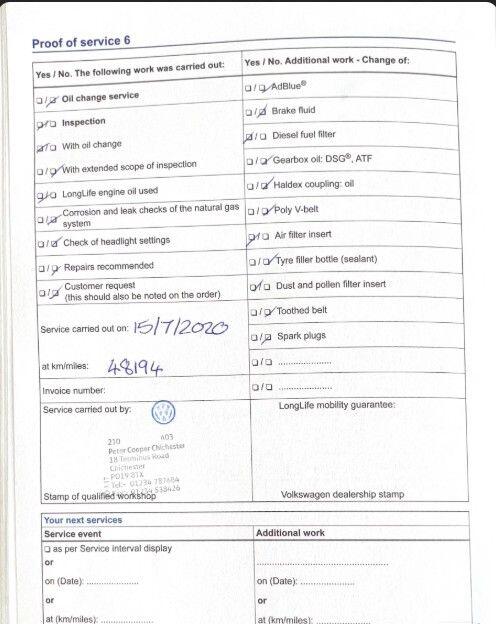 Proof of service 6
Yes / No. The following work was carried out:
☐/☑ Oil change service
☑/☐ Inspection
☑/☐ With oil change
☐/☑ With extended scope of inspection
☑/☐ LongLife engine oil used
☐/☑ Corrosion and leak checks of the natural gas
system
☐/☑ Check of headlight settings
☐/☑ Repairs recommended
☐/☑ Customer request
(this should also be noted on the order)
Service carried out on: 15/7/2020
at km/miles: 48194
Invoice number:
Service carried out by:
210 403
Peter Cooper Chichester
18 Terminus Road
Chichester
PO19 8TX
Tel:- 01234 787684
01234 538426
Stamp of qualified workshop
Yes / No. Additional work - Change of:
☐/☑ AdBlue®
☐/☑ Brake fluid
☑/☐ Diesel fuel filter
☐/☑ Gearbox oil: DSG®, ATF
☐/☑ Haldex coupling: oil
☐/☑ Poly V-belt
☑/☐ Air filter insert
☐/☑ Tyre filler bottle (sealant)
☑/☐ Dust and pollen filter insert
☐/☑ Toothed belt
☐/☑ Spark plugs
☐/☐ ....................
☐/☐ ....................
LongLife mobility guarantee:
Volkswagen dealership stamp
Your next services
Service event
☐ as per Service interval display
or
on (Date): ....................
or
at (km/miles): ....................
Additional work
........................................
on (Date): ....................
or
at (km/miles): ....................